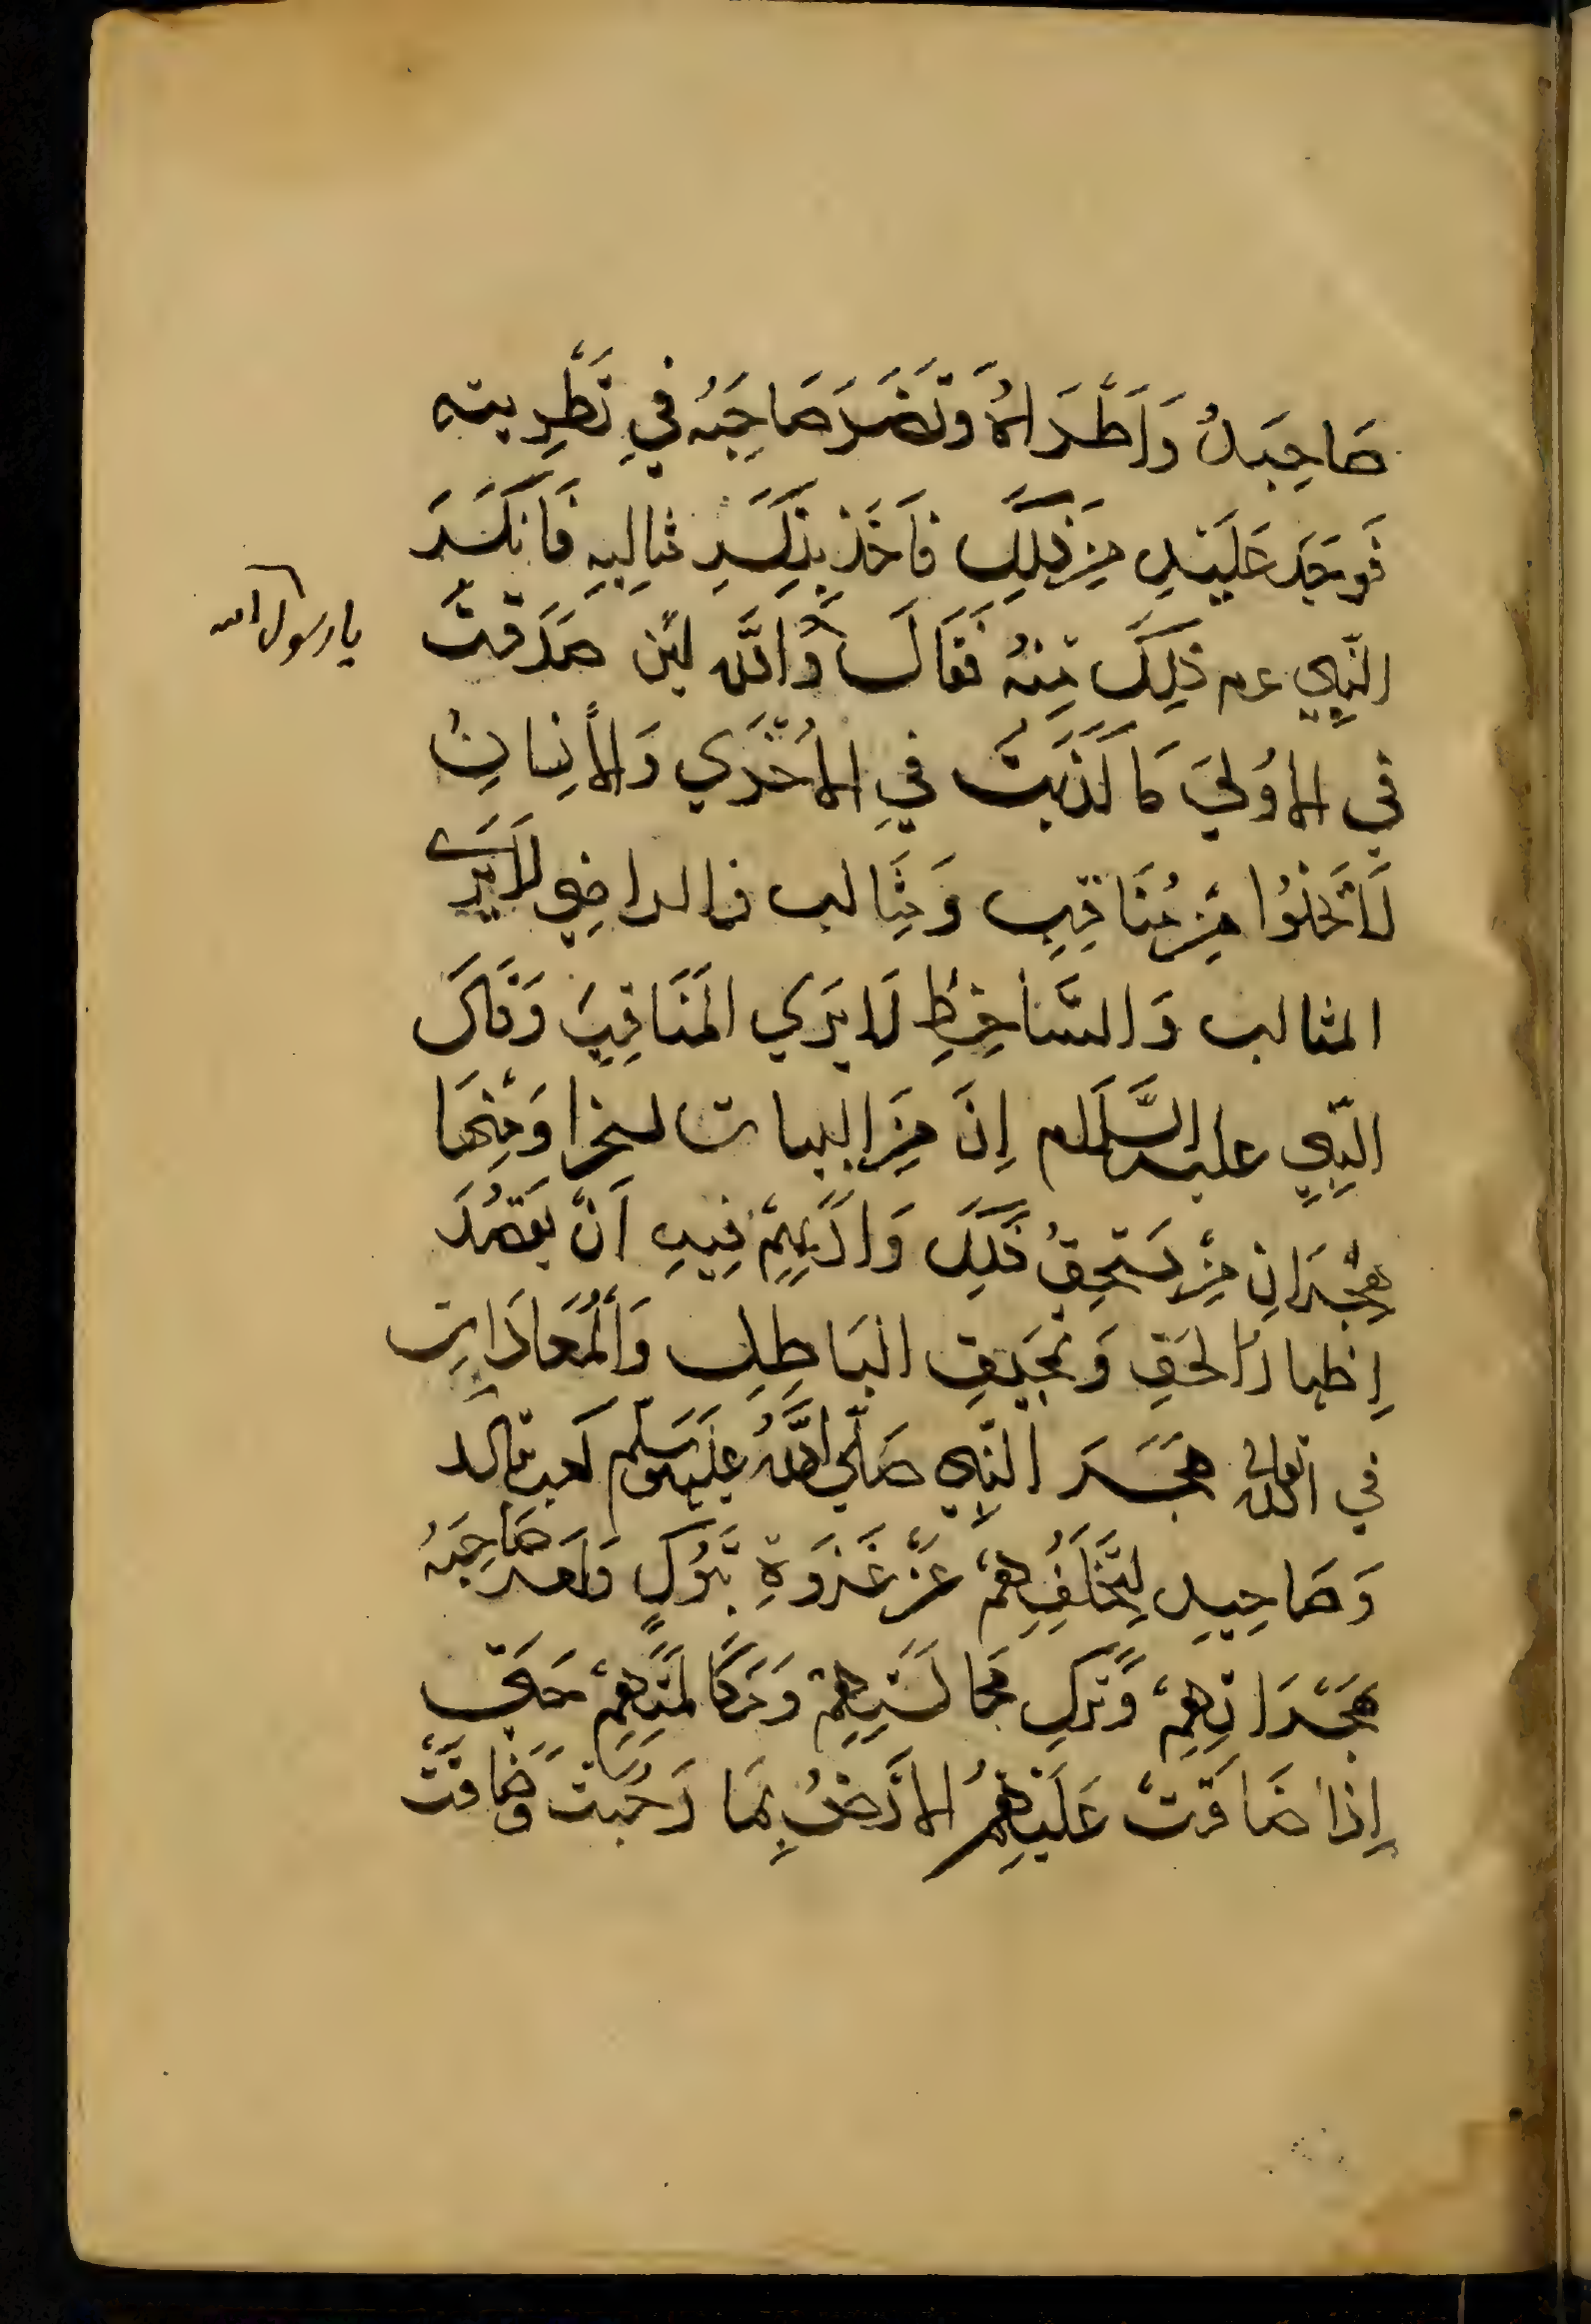 صَاحِبَهُ وَاَطْرَاهُ وَقَصَّرَ صَاحِبُهُ فِي تَطْرِيته
فَوَجَدَ عَلَيْهِ مِنْ ذَلِكَ فَاَخَذَ بِذِكْرِ مَثَالِبِهِ فَاَنْكَرَ
النَّبِي عم ذَلِكَ مِنْهُ فَقَالَ وَاللّٰه لَئِن صَدَقْتُ
يا رسول الله
فِي الاُولَي مَا كَذَبْتُ فِي الاُخْرَي وَالاِنْسَانُ
لَا تَخْلُوا مِنْ مَنَاقِبِ وَمَثَالب فالراضِي لَا يَرَى
المثالب وَالسَّاخِطِ لَا يَرَي الْمَنَاقِبَ وَقَالَ
النَّبِي عليه السَّلَام اِنَّ مِنَ البيان لسحرا وَمِنْهَا
هِجْرَانِ مَنْ يَسْتَحِقُ ذَلِكَ وَادَبِهِمْ فِيهِ اَنْ يَقْصُدَ
اِظهارَ الْحَقِ وَ الْبَاطِلِ وَالْمُعَادَاتِ
فِي الله تعالى هَجَرَ النَّبِي صَلَّي اللّٰهُ عَلَيْهِ وَسَلَّم كعب مالك
وَصَاحِبيهِ لِتَخَلُّفِهِمْ عَنْ غَزْوَةِ تَبُوكٍ وَامر صَاحِبَهُ
بِهَجْرَانِهِمْ وَتَركِ مُجَالَسَتِهِمْ وَمُكَالَمَتِهِمْ حَتّي
اِذَا ضَاقَتْ عَلَيْهِمُ الاَرْضُ بِمَا رَحُبَتْ وَضَاقَتْ